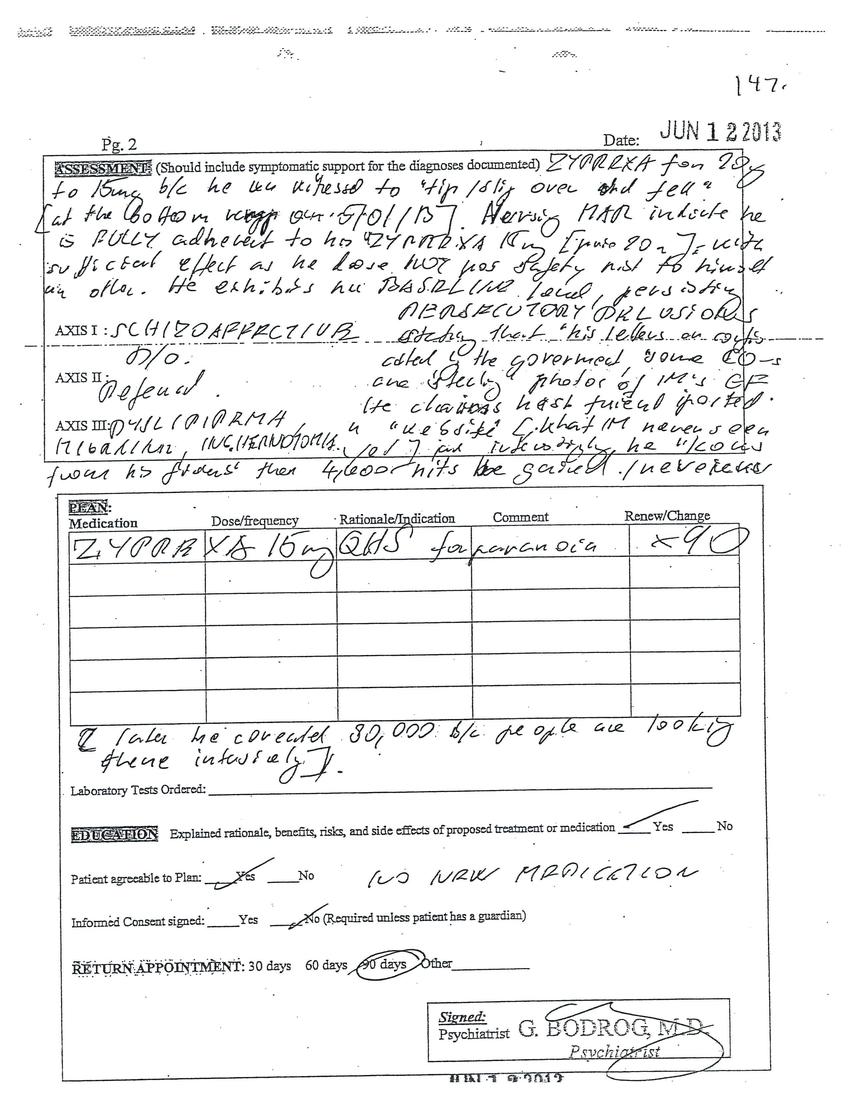 147.
Pg. 2
Date: JUN 12 2013
ASSESSMENT: (Should include symptomatic support for the diagnoses documented) ZYPREXA from 20g
to 15mg b/c he was witnessed to "tip/slip over and fell"
[at the bottom 5/01/13]. Nursing MAR indicate he
is FULLY adherent to his ZYPREXA 15mg [20m], with
sufficient effect as he dose NOT pos safety risk to himself
other. He exhibits his BASELINE level, persisting
PERSECUTORY DELUSIONS
AXIS I: SCHIZOAFFECTIVE stating that "his letters
D/O. the goverment some CO-s
AXIS II: Deferral. are photos of IM's GF
He best friend posted
AXIS III: DYSLIPIDEMA, a "website [that IM never seen
ING. HERNOTOMIA. he "knows
from his friends" then 4,600 hits be gained. /
PLAN:
Medication Dose/frequency Rationale/Indication Comment Renew/Change
ZYPREXA 15mg QHS for paranoia x90
[later he 30,000 b/c people are looking
there intensively].
Laboratory Tests Ordered:
EDUCATION Explained rationale, benefits, risks, and side effects of proposed treatment or medication Yes No
Patient agreeable to Plan: Yes No NO NEW MEDICATION
Informed Consent signed: Yes No (Required unless patient has a guardian)
RETURN APPOINTMENT: 30 days 60 days 90 days Other
Signed:
Psychiatrist G. BODROG, M.D.
Psychiatrist
JUN 12 2013